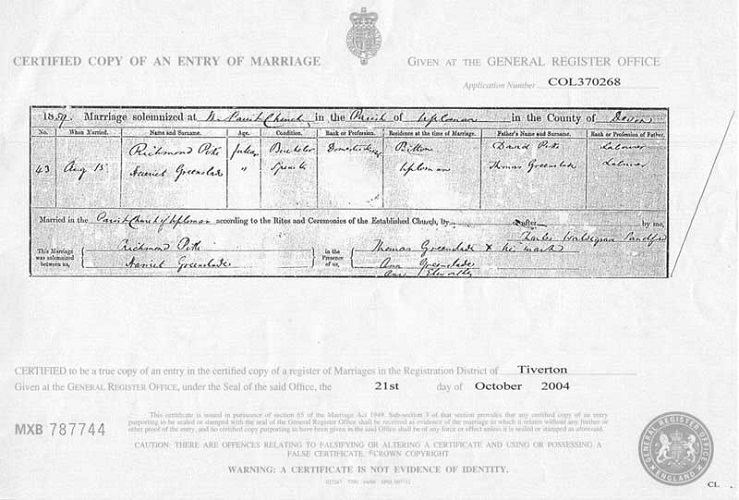 CERTIFIED COPY OF AN ENTRY OF MARRIAGE
GIVEN AT THE GENERAL REGISTER OFFICE
Application Number COL370268
1859. Marriage solemnized at the Parish Church in the Parish of Uplowman in the County of Devon
No. When Married. Name and Surname. Age. Condition. Rank or Profession. Residence at the time of Marriage. Father's Name and Surname. Rank or Profession of Father.
Richmond full age Bachelor Domestic David Labourer
43 Aug 15 Harriet Greenslade " Spinster Uplowman Thomas Greenslade Labourer
Married in the Parish Church of Uplowman according to the Rites and Ceremonies of the Established Church, by by me,
Charles
This Marriage was solemnized between us,
Richmond
Harriet Greenslade
in the Presence of us,
Thomas Greenslade x his mark
Ann Greenslade
Ann
CERTIFIED to be a true copy of an entry in the certified copy of a register of Marriages in the Registration District of Tiverton
Given at the GENERAL REGISTER OFFICE, under the Seal of the said Office, the 21st day of October 2004
MXB 787744
This certificate is issued in pursuance of section 65 of the Marriage Act 1949. Sub-section 3 of that section provides that any certified copy of an entry
purporting to be sealed or stamped with the seal of the General Register Office shall be received as evidence of the marriage to which it relates without any further or
other proof of the entry, and no certified copy purporting to have been given in the said Office shall be of any force or effect unless it is sealed or stamped as aforesaid.
CAUTION: THERE ARE OFFENCES RELATING TO FALSIFYING OR ALTERING A CERTIFICATE AND USING OR POSSESSING A
FALSE CERTIFICATE. ©CROWN COPYRIGHT
WARNING: A CERTIFICATE IS NOT EVIDENCE OF IDENTITY.
GENERAL REGISTER OFFICE
ENGLAND
CL